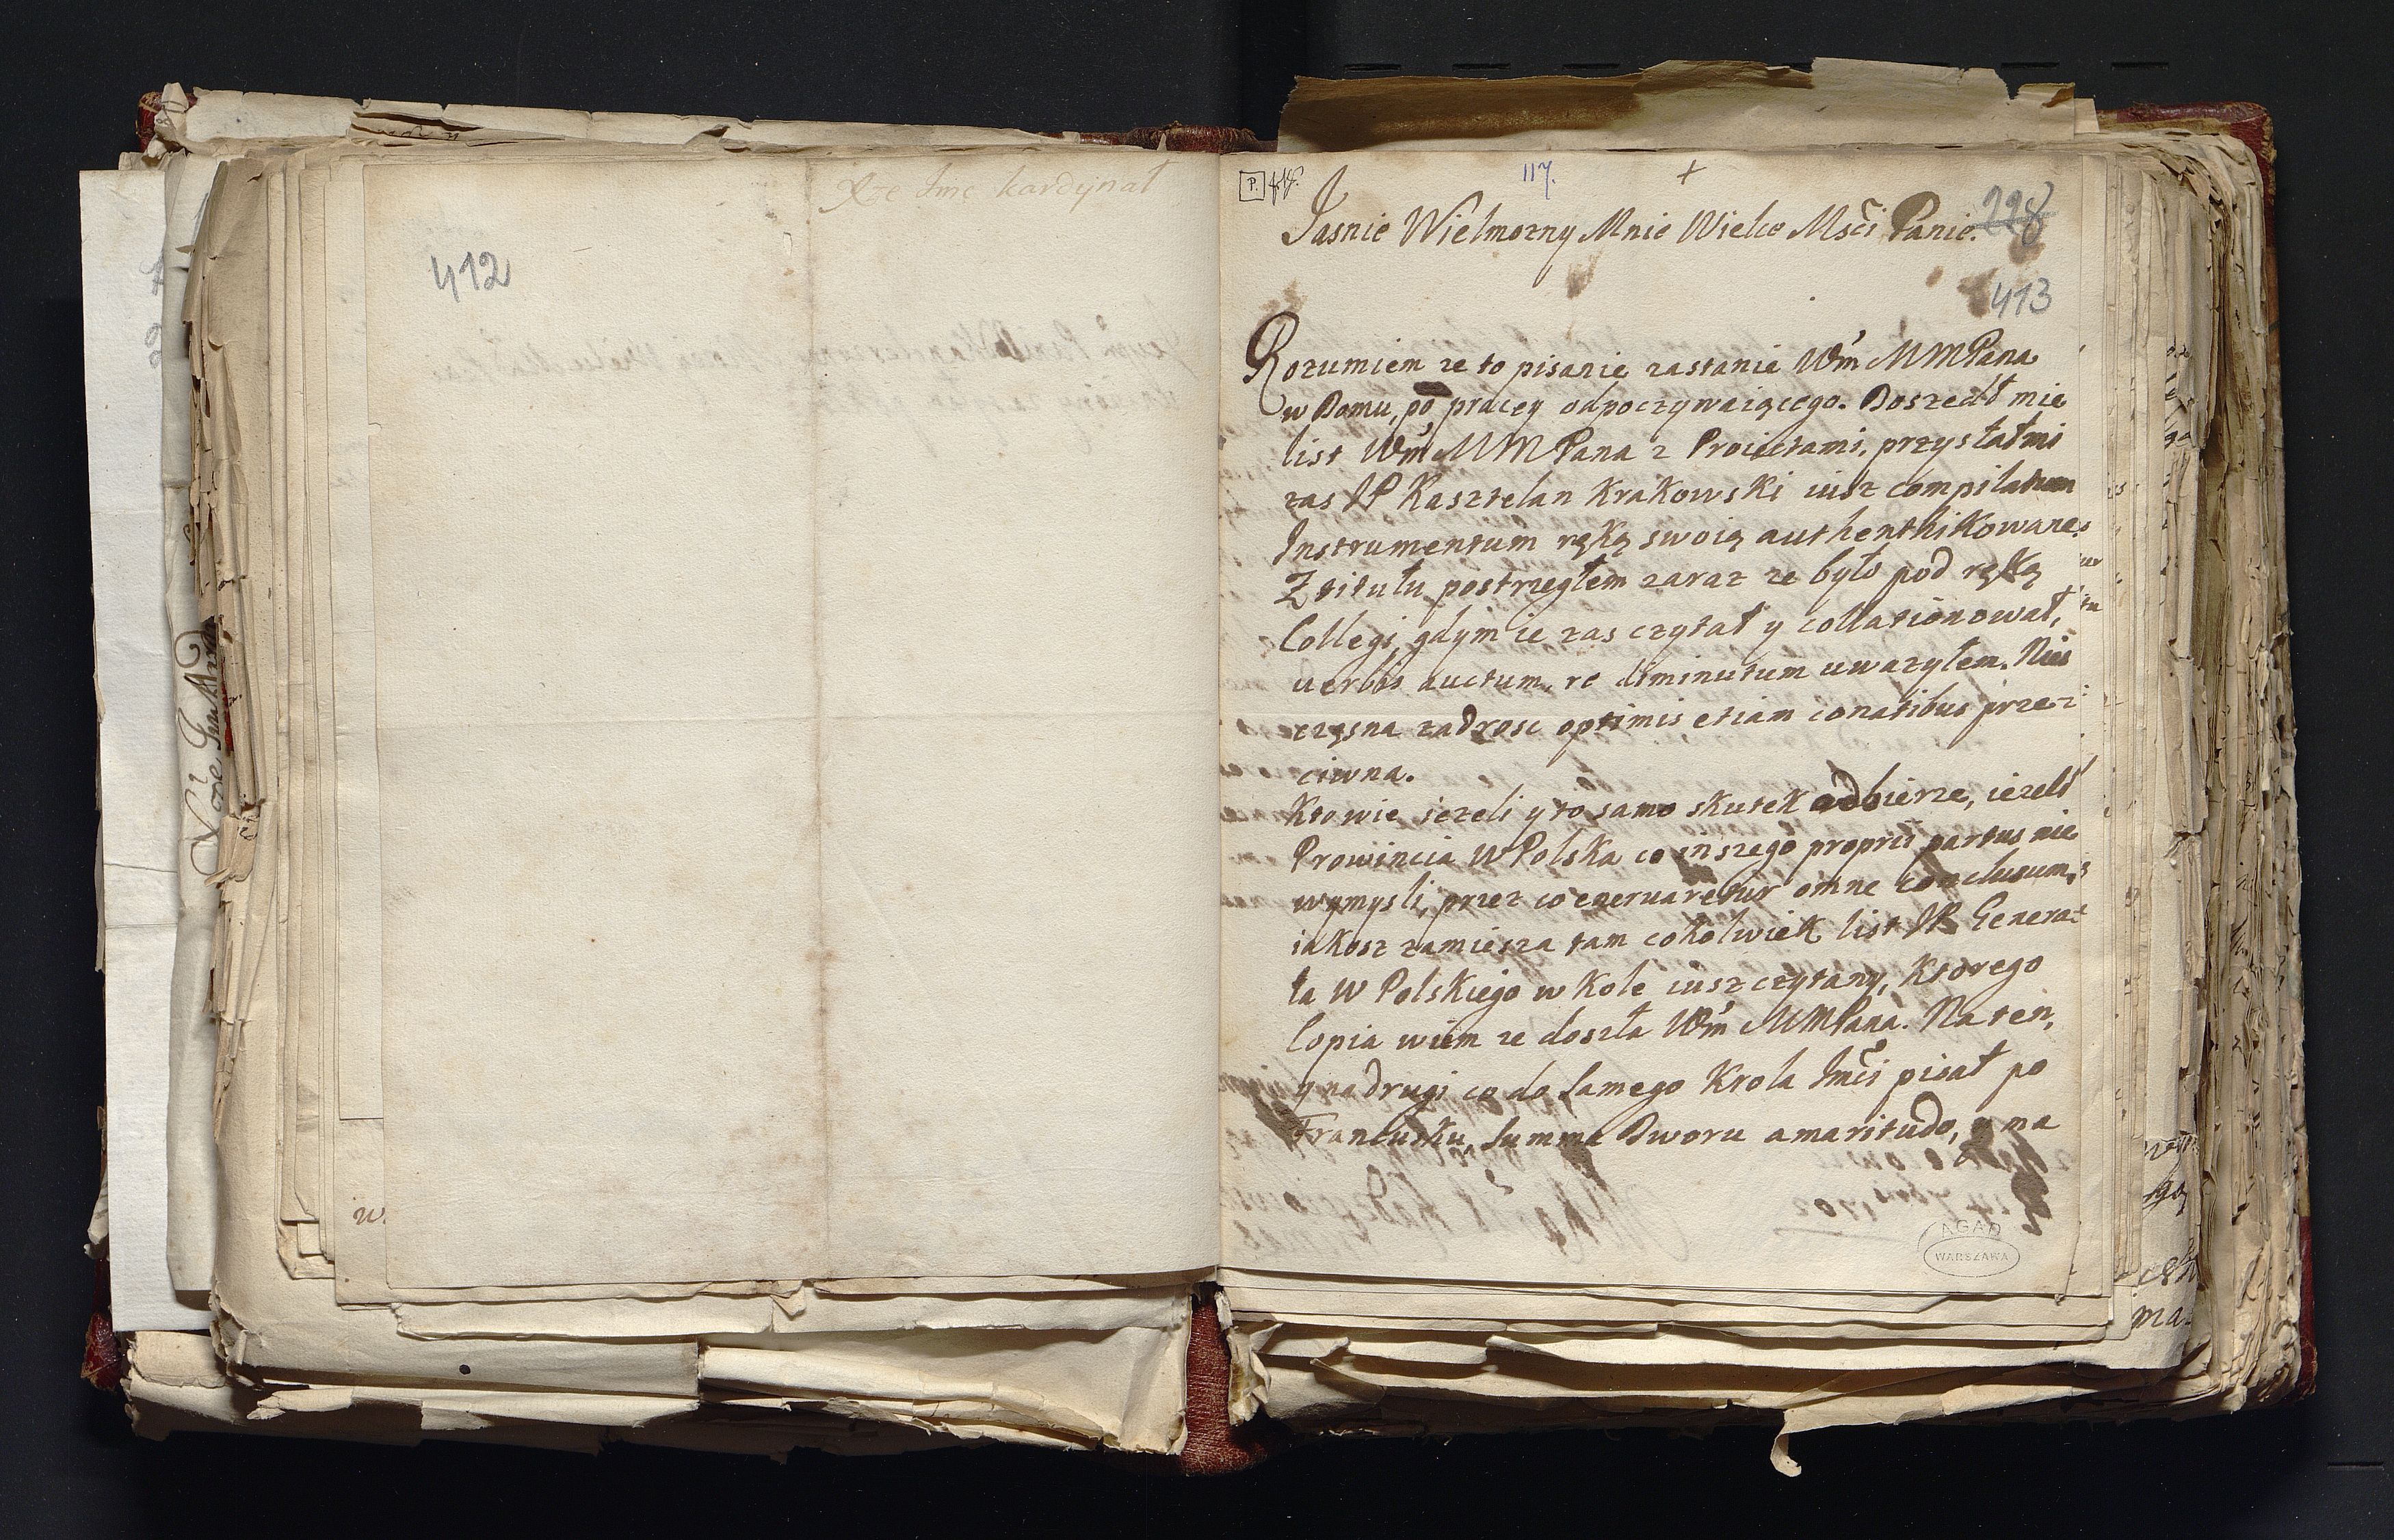 Xże Jmć kardynał
412
P.
117.
+
228
Jasnie Wielmozny Mnie Wielce Mści Panie.
413
Rozumiem ze to pisanie zastanie Wm MMPana
w Domu, po pracey odpoczywaiącego. Doszedł mie
list Wm MMPana z Proiectami, przysłał mi
zas JP Kasztelan Krakowski iusz compilatum
Instrumentum ręką swoią authenthikowane.
Z titułu postrzegłem zaraz ze było pod ręką
Collegi, gdym ie zas czytał y collationował,
verbis auctum, re diminutum uwazyłem. Nies
częsna zadrosc optimis etiam conatibus przez
ciwna.
Kto wie iezeli y to samo skutek odbierze, iezeli
Prowincia W Polska co inszego proprii partus nie
wymysli, przez co enervaretur omne conclusum,
iakosz zamiesza tam cokolwiek list JP Genera
ła W Polskiego w Kole iusz czytany, Ktorego
Copia wiem ze doszła Wm MMPana. Na ten,
y na drugi co do samego Krola Jmći pisał po
Francusku, summa Dworu amaritudo, y ma
AGAD
WARSZAWA